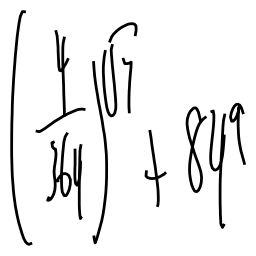 (4/364)^07 + 849